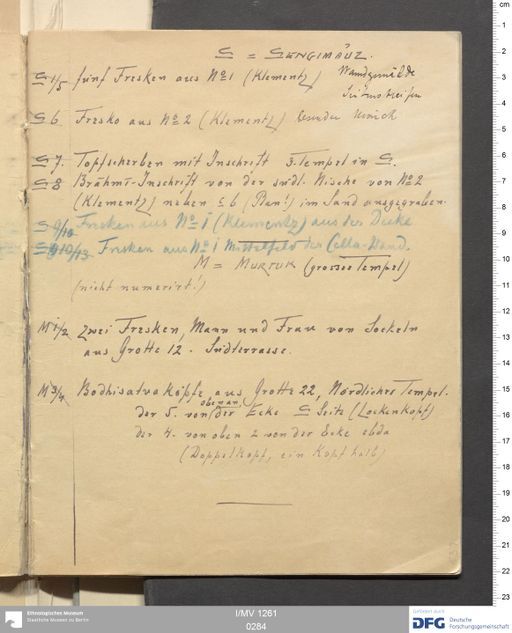 S = SENGIMÄUZ.
S 1/5 fünf Fresken aus No 1 (Klementz) Wandgemälde
S 6 Fresko aus No 2 (Klementz)
S 7. Topfscherben mit Inschrift 3. Tempel in S.
S 8 Brāhmī-Inschrift von der südl. Nische von No 2
(Klementz) neben S 6 (Plan!) im Sand ausgegraben.
S 9/10 Fresken aus No 1 (Klementz) aus der Decke
S 10/13. Fresken aus No 1 Mittelfeld der Cella-Wand.
M = MURTUK (grosser Tempel)
(nicht numerirt!)
M 1/2 Zwei Fresken, Mann und Frau von Sockeln
aus Grotte 12. Südterrasse.
M 3/4 Bodhisatvaköpfe aus Grotte 22, Nördlicher Tempel.
der 5. von oben an der Ecke S Seite (Lockenkopf)
der 4. von oben 2 von der Ecke ebda
(Doppelkopf, ein Kopf halb)
Ethnologisches Museum
Staatliche Museen zu Berlin
I/MV 1261
0284
Gefördert durch
DFG Deutsche
Forschungsgemeinschaft
cm
1
2
3
4
5
6
7
8
9
10
11
12
13
14
15
16
17
18
19
20
21
22
23